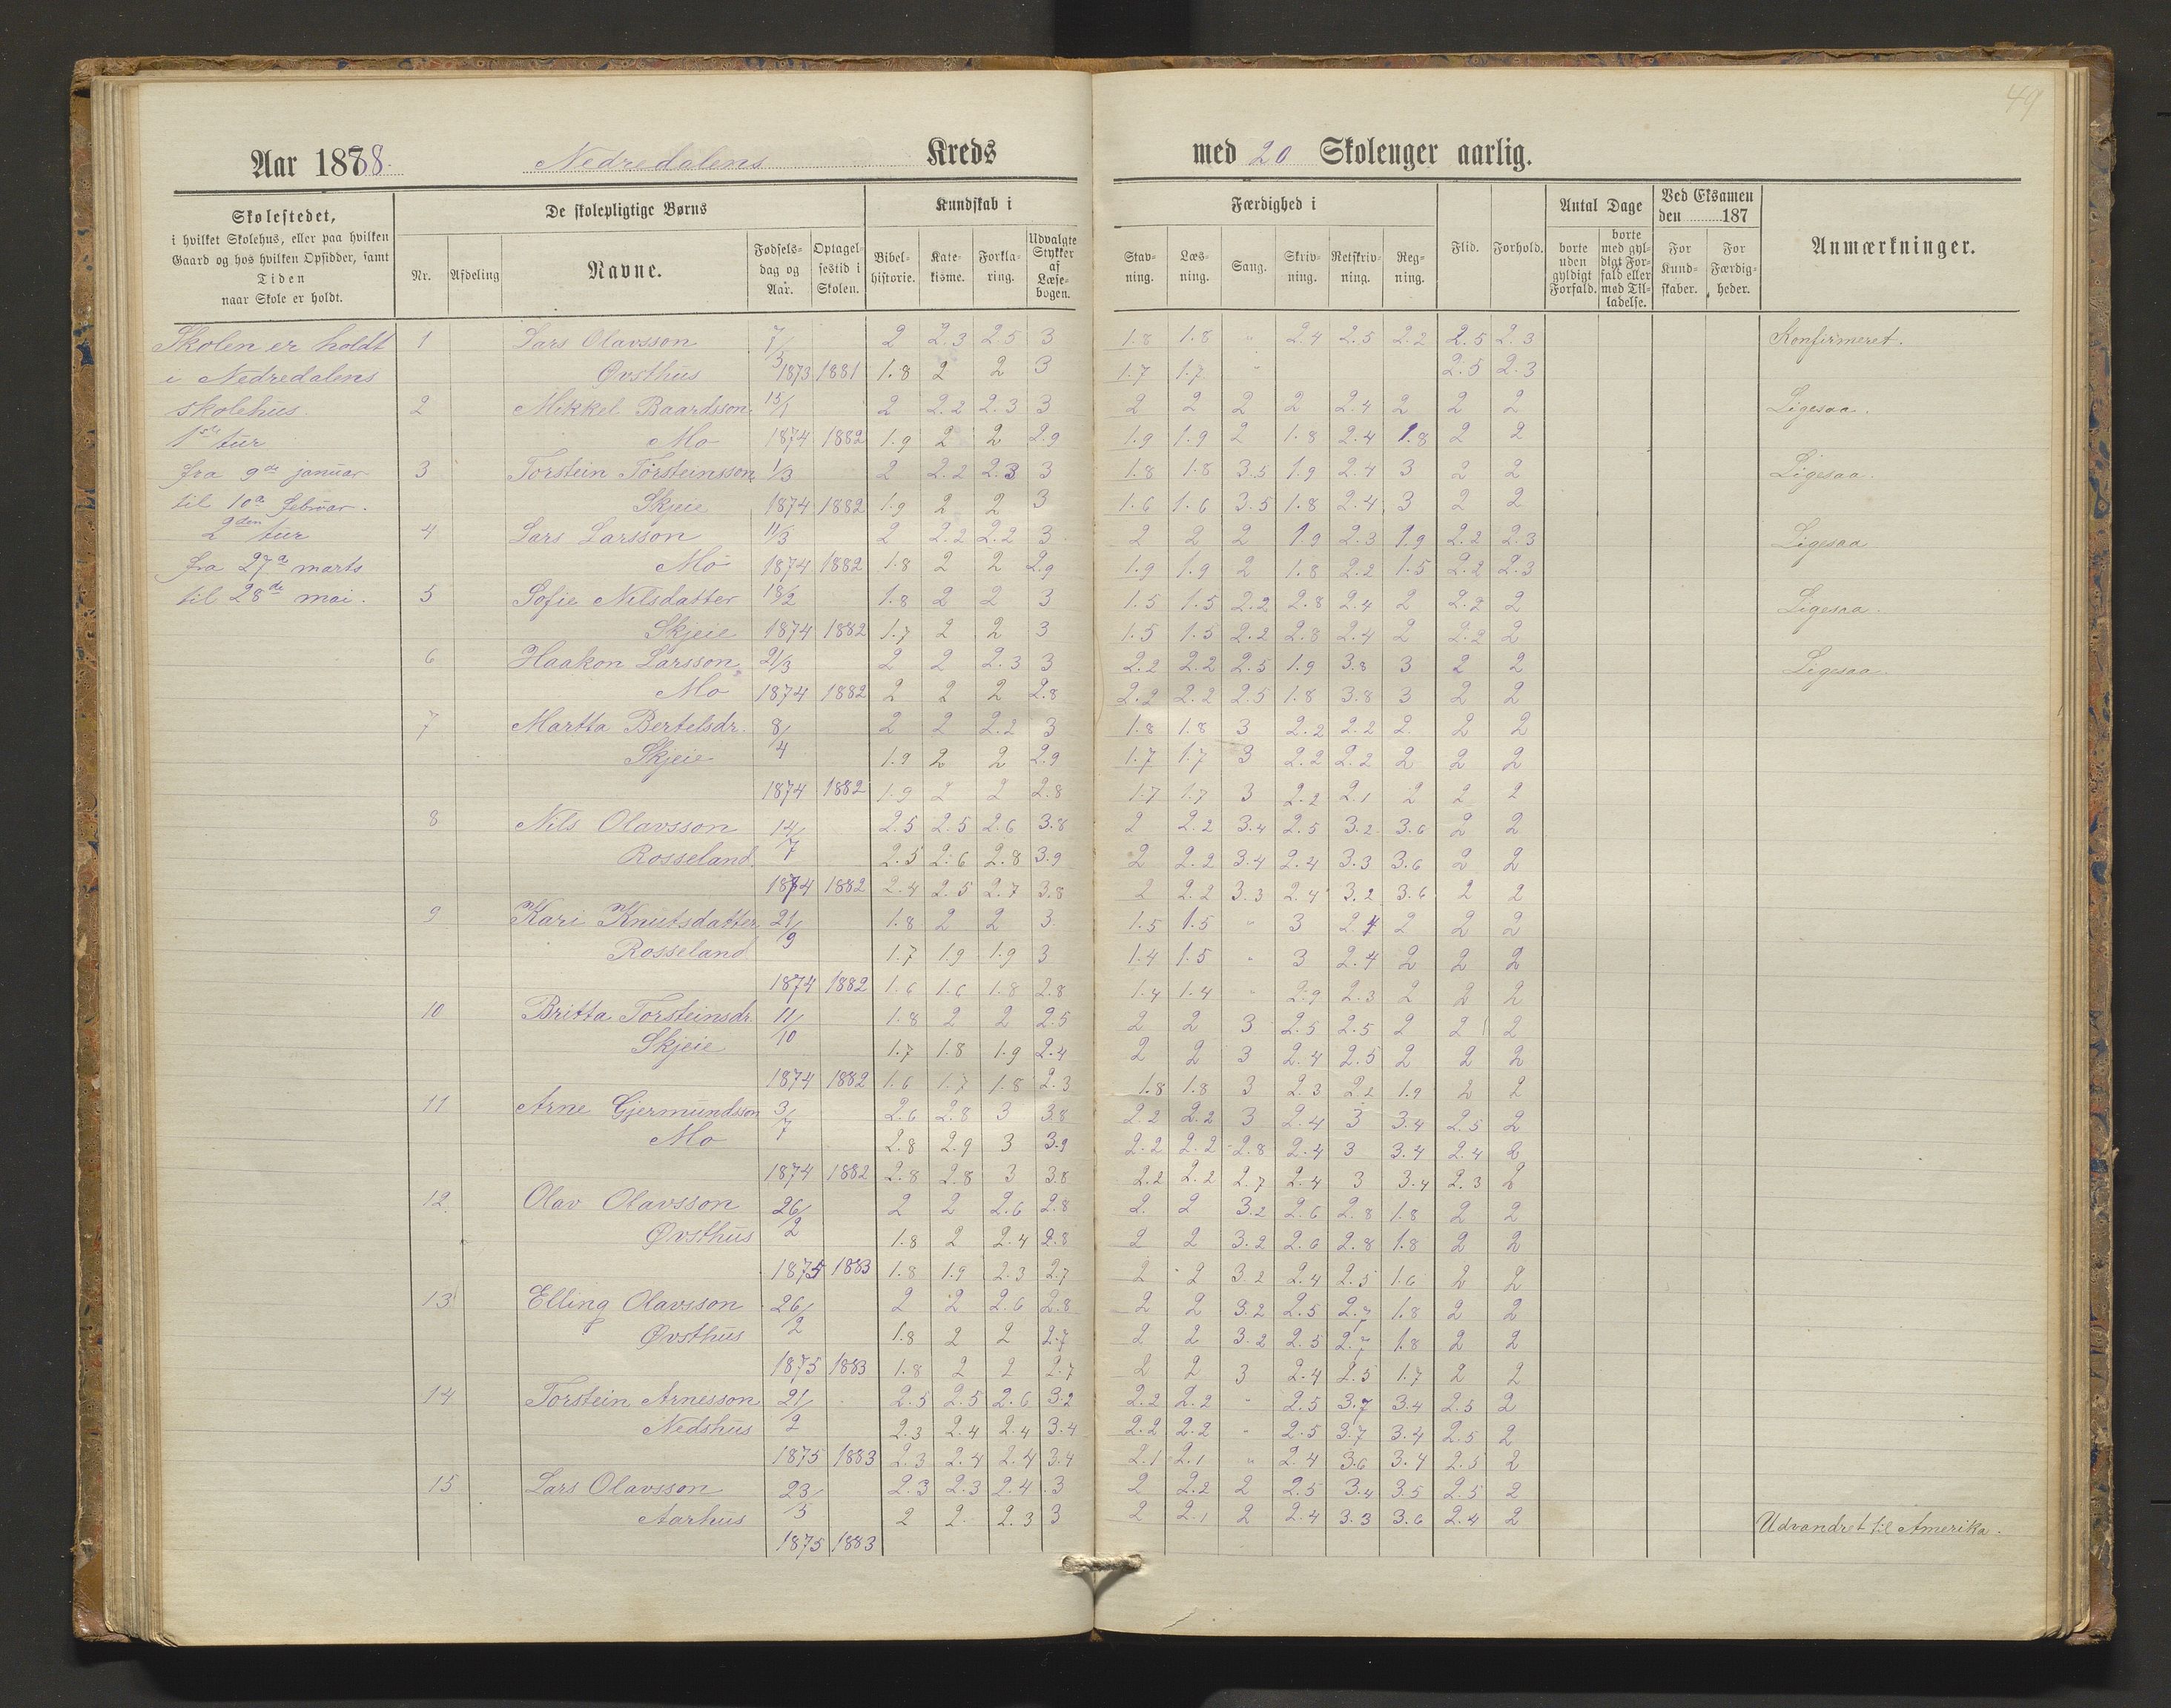 49
Aar 1888. Nedredalens Kreds med 20 Skoleuger aarlig.
Skolestedet, i hvilket Skolehus, eller paa hvilken Gaard og hos hvilken Opsidder, samt Tiden naar Skole er holdt.
De skolepligtige Børns
Nr. Afdeling Navne. Fødselsdag og Aar. Optagelsestid i Skolen.
Kundskab i
Bibelhistorie. Katekisme. Forklaring. Udvalgte Stykker af Læsebogen.
Færdighed i
Stavning. Læsning. Sang. Skrivning. Retskrivning. Regning.
Flid. Forhold.
Antal Dage
borte uden gyldigt Forfald. borte med gyldigt Forfald eller med Tilladelse.
Ved Eksamen den 187
For Kundskaber. For Færdigheder.
Anmærkninger.
Skolen er holdt
i Nedredalens
skolehus.
1ste tur
fra 9de januar
til 10de februar.
2den tur
fra 27de marts
til 28de mai.
1 Lars Olavsson 7/5 2 2.3 2.5 3 1.8 1.8 " 2.4 2.5 2.2 2.5 2.3 Konfirmeret.
Øvsthus 1873 1881 1.8 2 2 3 1.7 1.7 " 2.5 2.3
2 Mikkel Baardsson 15/1 2 2.2 2.3 3 2 2 2 2 2.4 2 2 2 Ligesaa.
Mo 1874 1882 1.9 2 2 2.9 1.9 1.9 2 1.8 2.4 1.8 2 2
3 Torstein Torsteinsson 1/3 2 2.2 2.3 3 1.8 1.8 3.5 1.9 2.4 3 2 2 Ligesaa.
Skjeie 1874 1882 1.9 2 2 3 1.6 1.6 3.5 1.8 2.4 3 2 2
4 Lars Larsson 11/3 2 2.2 2.2 3 2 2 2 1.9 2.3 1.9 2.2 2.3 Ligesaa
Mo 1874 1882 1.8 2 2 2.9 1.9 1.9 2 1.8 2.2 1.5 2.2 2.3
5 Sofie Nilsdatter 18/2 1.8 2 2 3 1.5 1.5 2.2 2.8 2.4 2 2.2 2 Ligesaa.
Skjeie 1874 1882 1.7 2 2 3 1.5 1.5 2.2 2.8 2.4 2 2.2 2
6 Haakon Larsson 21/3 2 2 2.3 3 2.2 2.2 2.5 1.9 3.8 3 2 2 Ligesaa.
Mo 1874 1882 2 2 2 2.8 2.2 2.2 2.5 1.8 3.8 3 2 2
7 Martta Bertelsdr. 8/4 2 2 2.2 3 1.8 1.8 3 2.2 2.2 2. 2 2
Skjeie 1.9 2 2 2.9 1.7 1.7 3 2.2 2.2 2 2 2
1874 1882 1.9 2 2 2.8 1.7 1.7 3 2.2 2.1 2 2 2
8 Nils Olavsson 14/7 2.5 2.5 2.6 3.8 2 2.2 3.4 2.5 3.2 3.6 2 2
Rosseland 2.5 2.6 2.8 3.9 2 2.2 3.4 2.4 3.3 3.6 2 2
1874 1882 2.4 2.5 2.7 3.8 2 2.2 3.3 2.4 3.2 3.6 2 2
9 Kari Knutsdatter 21/9 1.8 2 2 3. 1.5 1.5 " 3 2.4 2 2 2
Rosseland 1.7 1.9 1.9 3 1.4 1.5 " 3 2.4 2 2 2
1874 1882 1.6 1.6 1.8 2.8 1.4 1.4 " 2.9 2.3 2 2 2
10 Britta Torsteinsdr. 11/10 1.8 2 2 2.5 2 2 3 2.5 2.5 2 2 2
Skjeie 1.7 1.8 1.9 2.4 2 2 3 2.4 2.5 2 2 2
1874 1882 1.6 1.7 1.8 2.3 1.8 1.8 3 2.3 2.2 1.9 2 2
11 Arne Gjermundsson 3/7 2.6 2.8 3 3.8 2.2 2.2 3 2.4 3 3.4 2.5 2
Mo 2.8 2.9 3 3.9 2.2 2.2 2.8 2.4 3 3.4 2.4 2
1874 1882 2.8 2.8 3 3.8 2.2 2.2 2.7 2.4 3 3.4 2.3 2
12. Olav Olavsson 26/2 2 2 2.6 2.8 2. 2 3.2 2.6 2.8 1.8 2 2
Øvsthus 1.8 2 2.4 2.8 2 2 3.2 2.6 2.8 1.8 2 2
1875 1883 1.8 1.9 2.3 2.7 2 2 3.2 2.4 2.5 1.6 2 2
13 Elling Olavsson 26/2 2 2 2.6 2.8 2 2 3.2 2.5 2.7 1.8 2 2
Øvsthus 1.8 2 2 2.7 2 2 3.2 2.5 2.7 1.8 2 2
1875 1883 1.8 2 2 2.7 2 2 3 2.4 2.5 1.7 2 2
14 Torstein Arnesson 21/2 2.5 2.5 2.6 3.2 2.2 2.2 " 2.5 3.7 3.4 2.5 2
Nedshus 2.3 2.4 2.4 3.4 2.2 2.2 " 2.5 3.7 3.4 2.5 2
1875 1883 2.3 2.4 2.4 3.4 2.1 2.1 " 2.4 3.6 3.4 2.5 2
15 Lars Olavsson 23/5 2.3 2.3 2.4 3 2 2.2 2 2.5 3.4 3.5 2.5 2
Aarhus 2 2. 2.3 3 2 2.1 2 2.4 3.3 3.6 2.4 2 Udvandret til Amerika.
1875 1883